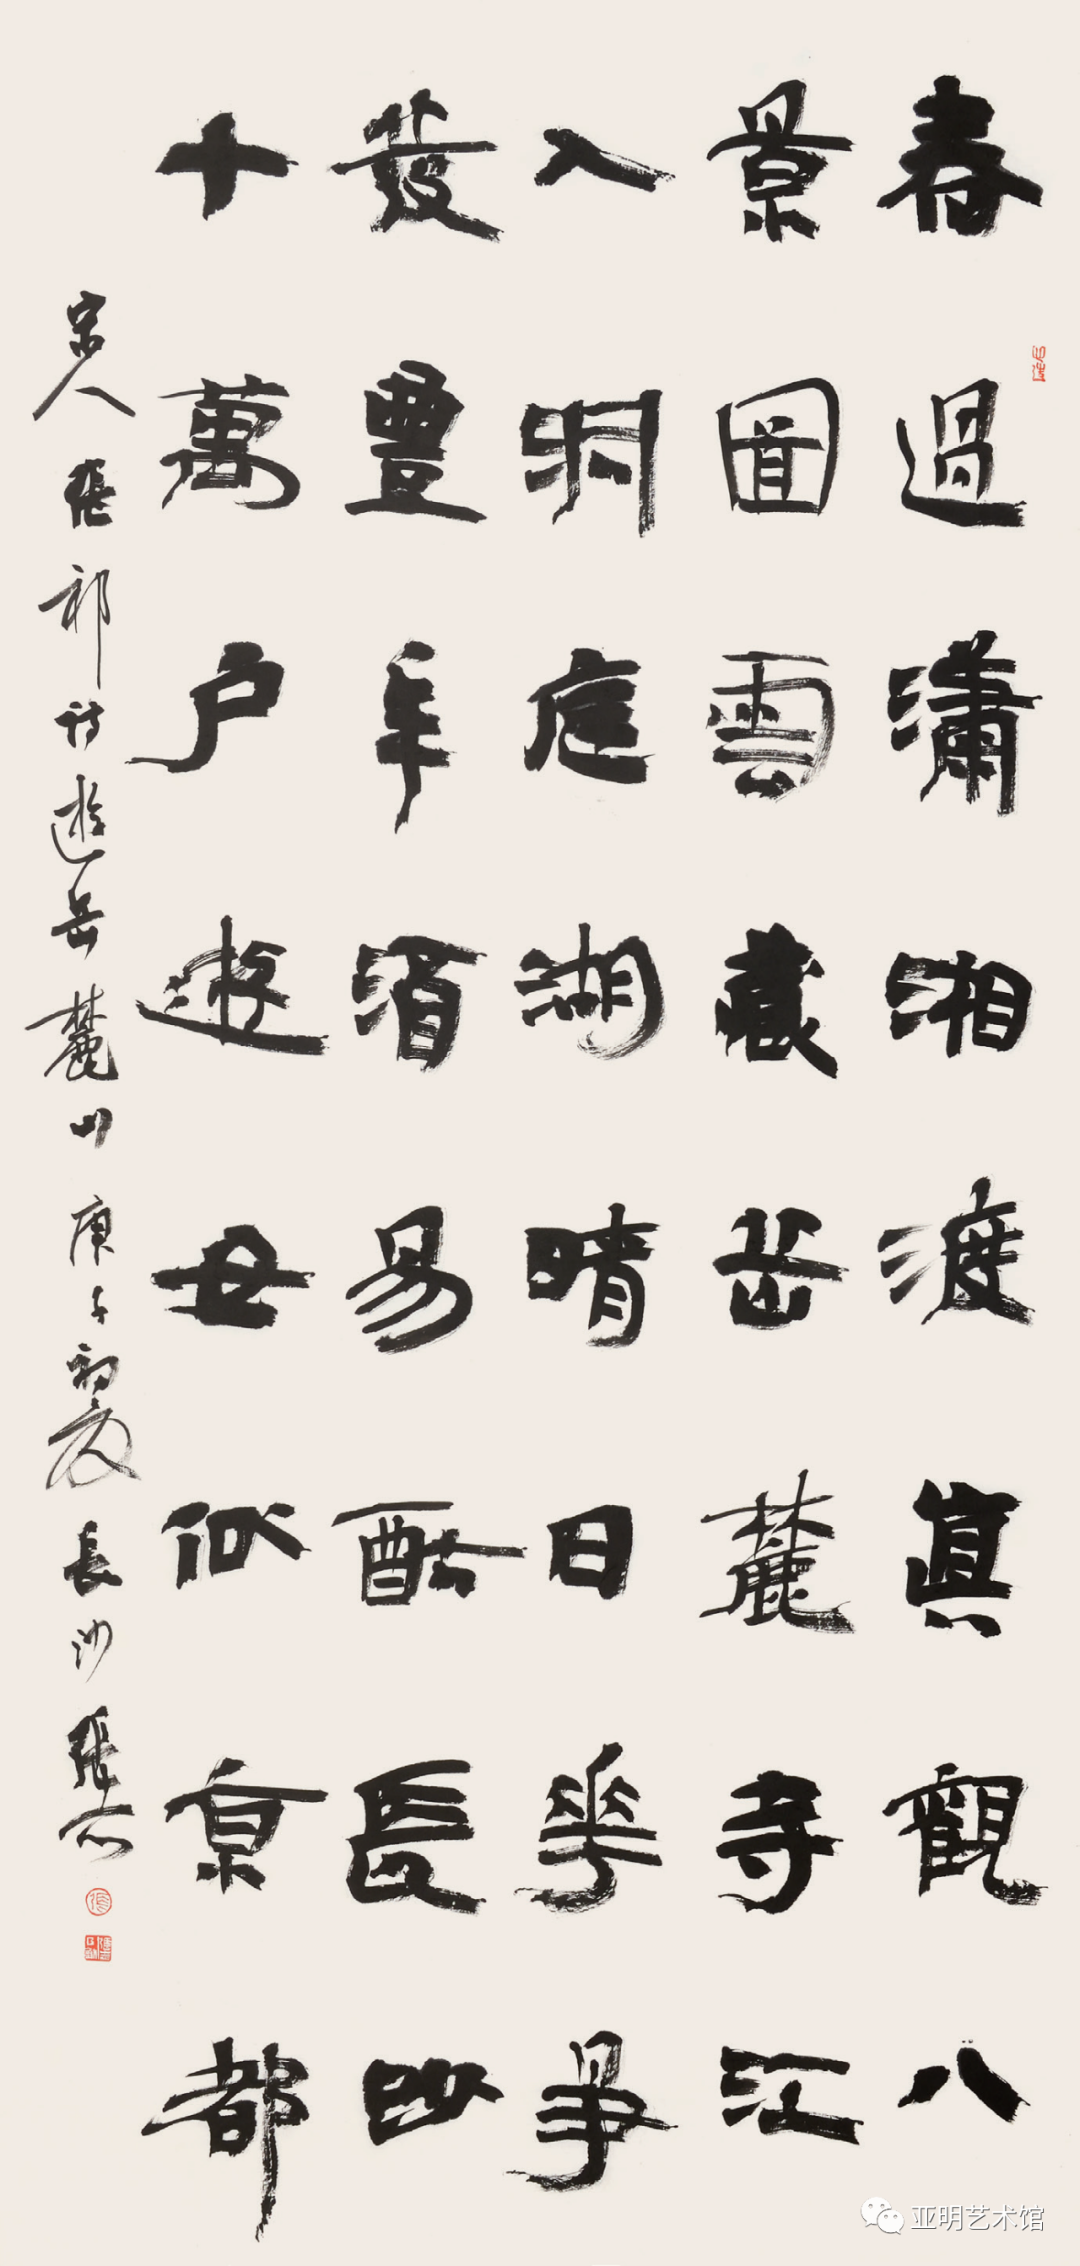 春過瀟湘渡真觀八
景圖雲藏岳麓寺江
入洞庭湖晴日花爭
發豐年酒易酤長沙
十萬户遊女似京都
宋人張祁詩遊岳麓山庚子初夏長沙張
亚明艺术馆